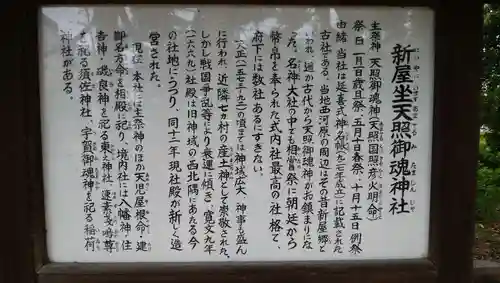 新屋坐天照御魂神社
主祭神 天照御魂神(天照国照彦火明命)
祭日 一月一日歳旦祭、五月十日春祭、十月十五日例祭
由緒 当社は延喜式神名帳(九二七年成立)に記載された
古社である。当地西河原の周辺はその昔新屋郷と
いわれ、遥か古代から天照御魂神がお鎮まりにな
った。名神大社の中でも相嘗祭に朝廷から
幣帛を奉られた式内社最高の社格で、大阪
府下には数社あるにすぎない。
大正(一五七三〜九)の頃までは神域広大、神事も盛ん
に行われ、近隣七カ村の産土神として崇敬された。
しかし戦国争乱等により衰運に傾き、寛文九年
(一六六九)社殿は旧神域の西北隅にあたる今
の社地にうつり、同十二年現社殿が新しく造
営された。
現在、本社には主祭神のほか天児屋根命・建
御名方命を相殿に祀り、境内社には八幡神・住
吉神・磯良神を祀る東之神社、速素戔嗚尊
を祀る須佐神社、宇賀御魂神を祀る稲荷
神社がある。